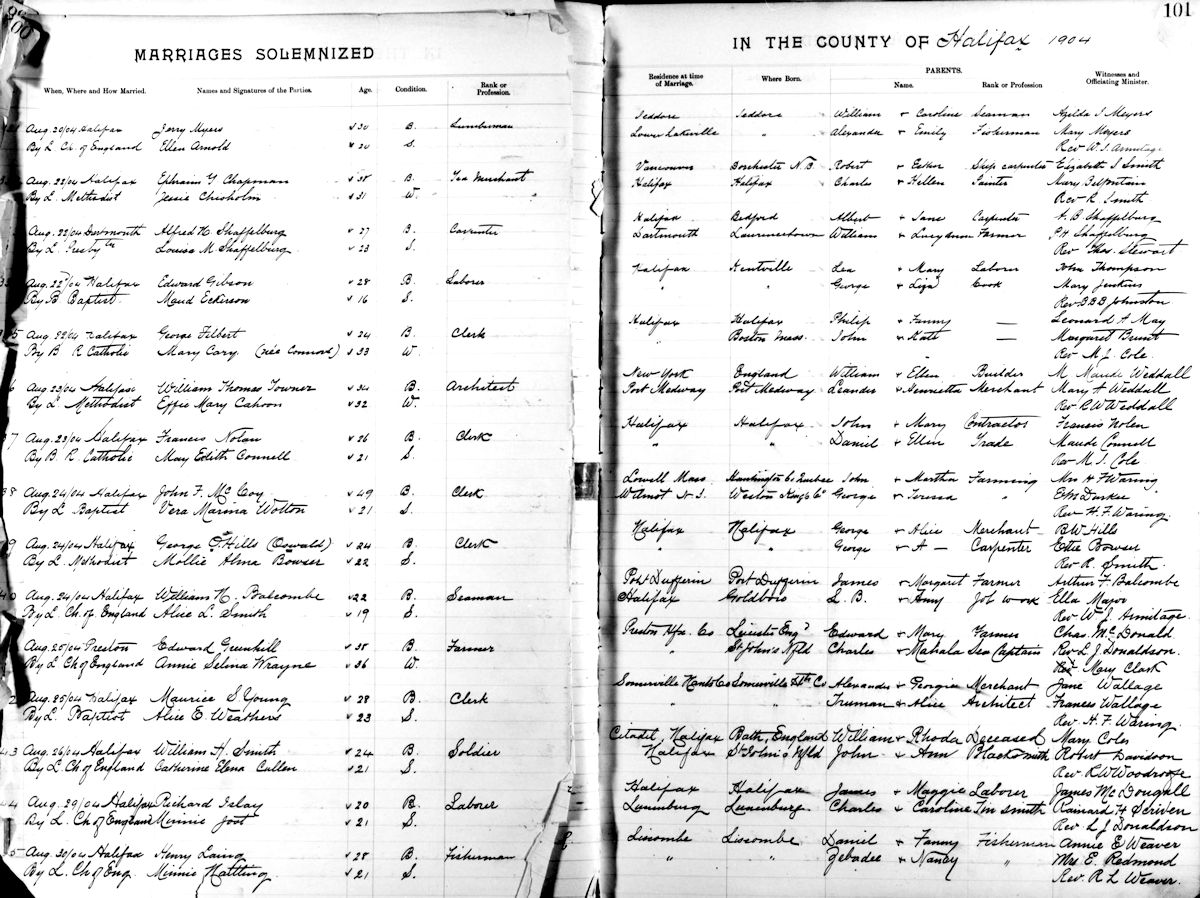 101
MARRIAGES SOLEMNIZED
IN THE COUNTY OF Halifax 1904
When, Where and How Married. Names and Signatures of the Parties. Age. Condition. Rank or Profession.
Aug. 20/04 Halifax Jerry Myers 30 B. Lumberman
By L Ch. of England Ellen Arnold 20 S.
Aug. 22/04 Halifax Ephraim Y Chapman 38 B. Tea Merchant
By L. Methodist Jessie Chisholm 31 W. "
Aug. 22/04 Dartmouth Alfred H. Shaffelburg 27 B. Carpenter
By L. Presbyth Louise M. Shaffelburg 23 S.
Aug. 22/04 Halifax Edward Gibson 28 B. Laborer
By B Baptist. Maud Eckerson 16 S.
5 Aug 22/04 Halifax George Filbert 24 B. Clerk
By B R Catholic Mary Cary. (née Connors) 33 W.
6 Aug 23/04 Halifax William Thomas Towner 34 B. Architect
By L. Methodist Effie Mary Cahoon 32 W.
37 Aug. 23/04 Halifax Francis Nolan 26 B. Clerk
By B. R. Catholic May Edith Connell 21 S.
38 Aug. 24/04 Halifax John F. McCoy 49 B. Clerk
By L Baptist Vera Marina Wotton 21 S.
9 Aug. 24/04 Halifax George O. Hills (Oswald) 24 B. Clerk
By L. Methodist Mollie Alma Bowser 22 S.
40 Aug. 24/04 Halifax William H. Balcombe 22 B. Seaman
By L. Ch. of England Alice L. Smith 19 S.
Aug. 25/04 Preston Edward Greenhill 38 B. Farmer
By L Ch of England Annie Selina Wrayne 36 W.
2 Aug 25/04 Halifax Maurice S. Young 28 B. Clerk
By L. Baptist Alice E. Weathers 23 S.
43 Aug. 26/04 Halifax William H. Smith 24 B. Soldier
By L. Ch. of England Catherine Elena Cullen 21 S.
44 Aug. 29/04 Halifax Richard Islay 20 B. Laborer
By L. Ch of England Minnie Jost 21 S.
5 Aug. 30/04 Halifax Henry Laing 28 B. Fisherman
By L. Ch of Eng. Minnie Hattling 21 S.
Residence at time of Marriage. Where Born. PARENTS. Name. Rank or Profession Witnesses and Officiating Minister.
Jeddore Jeddore William + Caroline Seaman Azelda I Meyers
Lower Lakeville " Alexander + Emily Fisherman Mary Meyers
Rev W. J. Armitage
Vancouver Dorchester N.B. Robert + Esther Ship carpenter Elizabeth S Smith
Halifax Halifax Charles + Hellen Painter Mary Belfontain
Rev R. Smith
Halifax Bedford Albert + Jane Carpenter A. B Shaffelburg
Dartmouth Lawrencetown William + Lucy Ann Farmer P H Shaffelburg
Rev Thos. Stewart
Halifax Kentville Lea + Mary Laborer John Thompson
" " George + Liza Cook Mary Jenkins
Rev. B B B Johnston
Halifax Halifax Philip + Fanny — Leonard A May
" Boston Mass. John + Kate — Margaret Brunt
Rev M. J. Cole.
New York England William + Ellen Builder M Maude Weddall
Port Medway Port Medway Leander + Henrietta Merchant Mary F Weddall
Rev R W Weddall
Halifax Halifax John + Mary Contractor Francis Nolen
" " Daniel + Ellen Trade Maude Connell
Rev M. J. Cole
Lowell Mass. Huntington Co Quebec John + Martha Farming Mrs H F Waring
Wilmot N.S. Weston Kings Co George + Teressa " E M Durkee
Rev. H. F. Waring.
Halifax Halifax George + Alice Merchant B W Hills
" " George + A — Carpenter Ettie Bowser
Rev R. Smith.
Port Dufferin Port Dufferin James + Margaret Farmer Arthur F Balcombe
Halifax Goldboro S. B. + Amy Job work Ella Major
Rev W. J. Armitage.
Preston Hfx. Co Leicester Eng'd Edward + Mary Farmer Chas. McDonald
" St John's Nfld Charles + Mahala Sea Captain Rev L J Donaldson.
Mary Clark
Somerville Hants Co Somerville Hts Co Alexander + Georgie Merchant Jane Wallage
" " Truman + Alice Architect Frances Wallage
Rev. H. F. Waring.
Citadel, Halifax Bath, England William + Rhoda Deceased Mary Coles
Halifax St. Johns Nfld John + Ann Blacksmith Robert Davidson
Rev R W Woodroofe
Halifax Halifax James + Maggie Laborer James McDougall
Lunenburg Lunenburg Charles + Caroline Tin smith Rainard H Scriven
Rev. L J Donaldson
Liscombe Liscombe Daniel + Fanny Fisherman Annie E Weaver
" " Zebadee + Nancy " Mrs E. Redmond
Rev. R L Weaver.